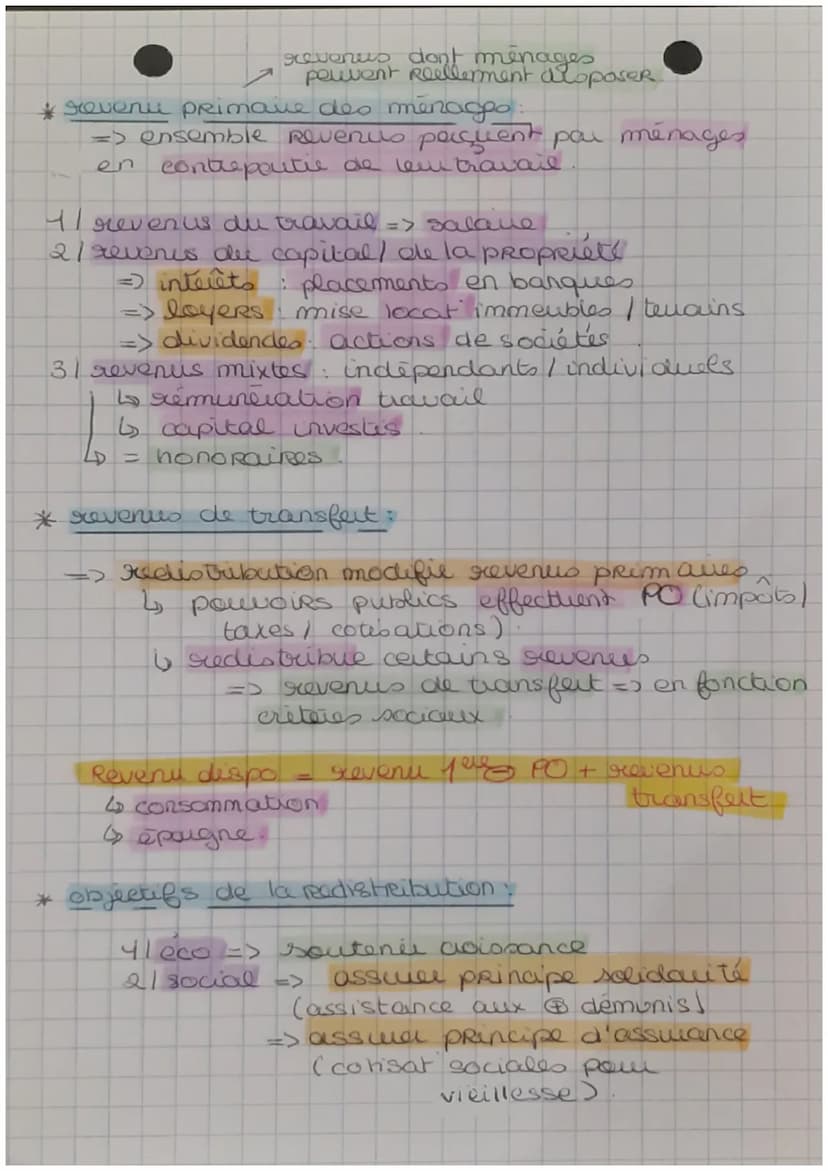 revenus dont ménages
peuvent Réellement disposer
* revenu primaire des ménages :
=> ensemble Revenus perçuent par ménages
en contrepartie de leur travail.
1/ revenus du travail => salaire
2/ revenus du capital / de la propriété
=> intérêts : placements en banques
=> loyers : mise locat° immeubles / terrains
=> dividendes : actions de sociétés
3/ revenus mixtes : indépendants / individuels
↳ rémunération travail
↳ capital investis.
↳ = honoraires.
* revenus de transfert :
=> redistribution modifie revenus primaires
↳ pouvoirs publics effectuent PO (impôts /
taxes / cotisations).
↳ redistribue certains revenus
=> revenus de transfert => en fonction
critères sociaux.
Revenu dispo = revenu 1ere ⊖ PO + revenus
transfert
↳ consommation
↳ épargne.
* objectifs de la redistribution :
1/ éco => soutenir croissance
2/ social => assurer principe solidarité
(assistance aux ⊕ démunis)
=> assurer principe d'assurance
(cotisat° sociales pour
vieillesse).